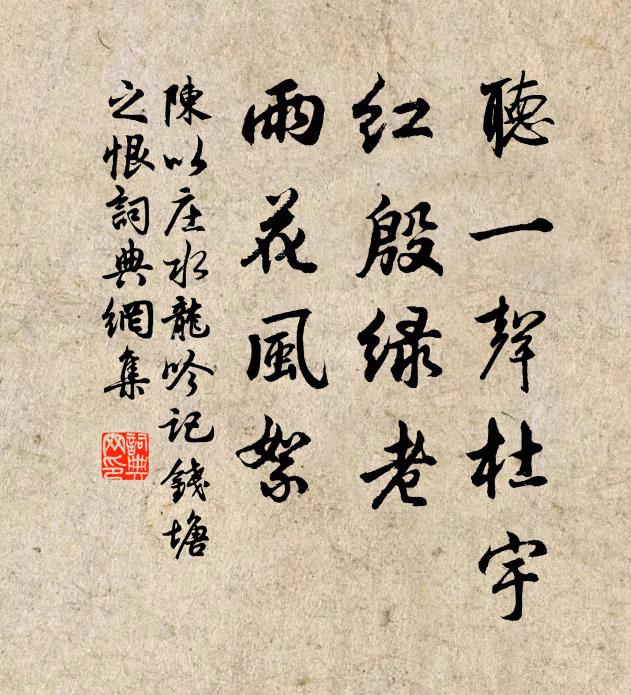 聽一聲杜宇
紅殷綠老
雨花風絮
陳以庄水龍吟記錢塘
之恨詞典網集
詞典
網印